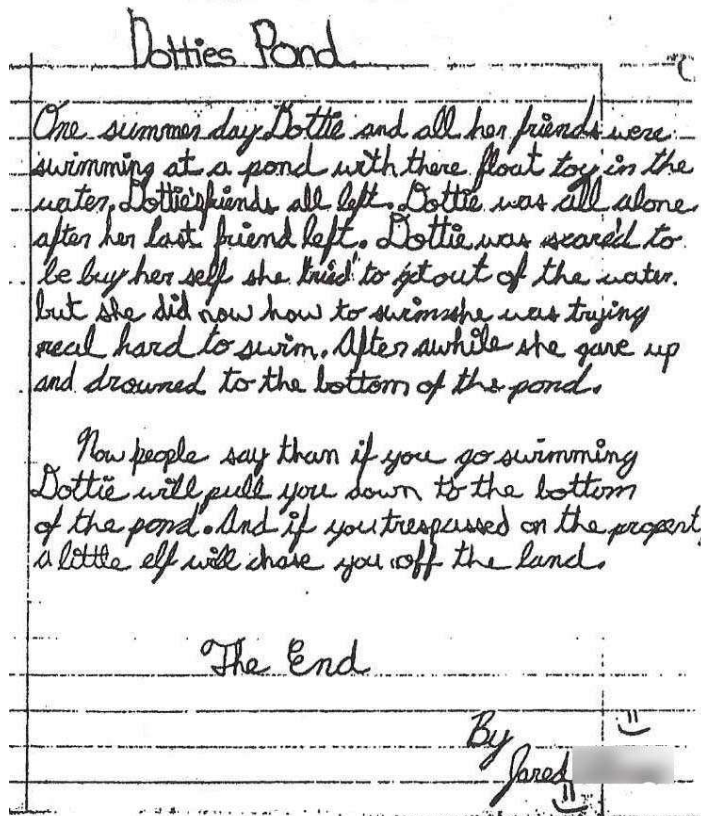 Dotties Pond
One summer day Dottie and all her friends were
swimming at a pond with there float toy in the
water. Dottie's friends all left. Dottie was all alone
after her last friend left. Dottie was scare'd to
be buy her self she tried to get out of the water.
but she did now how to swim she was trying
real hard to swim. After awhile she gave up
and drowned to the bottom of the pond.
Now people say than if you go swimming
Dottie will pull you down to the bottom
of the pond. And if you trespassed on the property
a little elf will chase you off the land.
The End
By
Jared